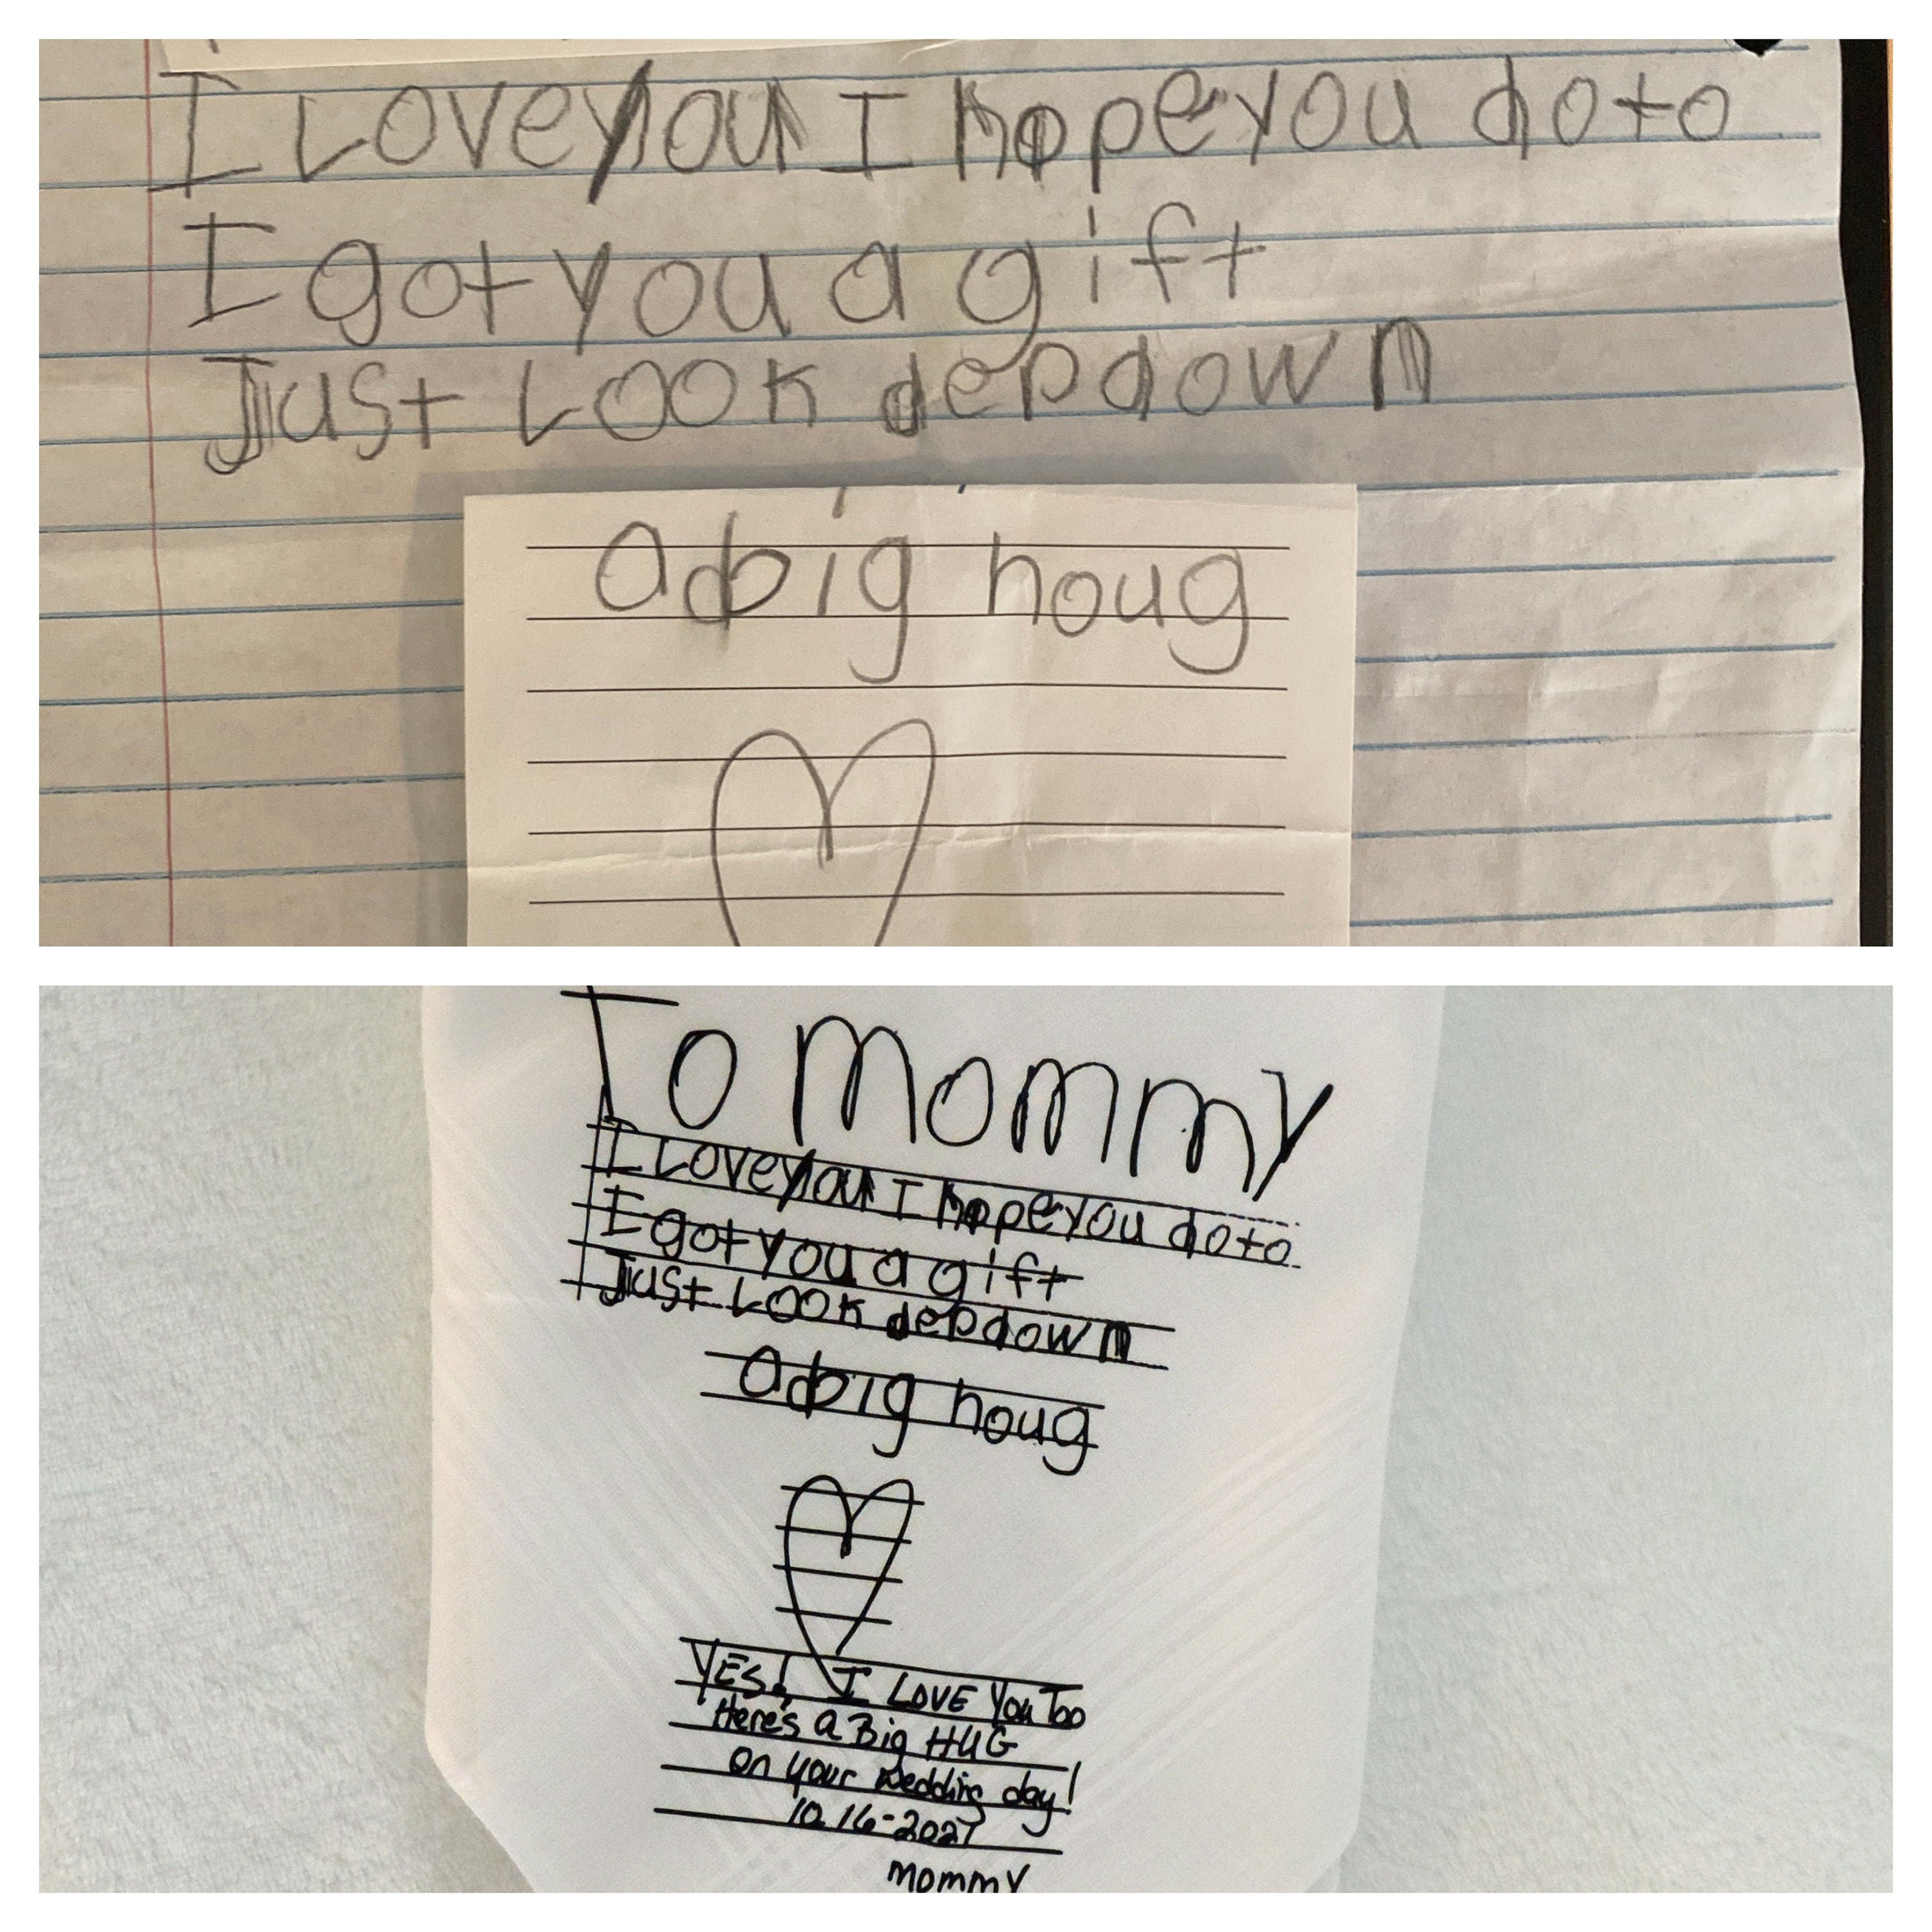 I Loveyou I hopeyou do to
I got you a gift
Just Look depdown
a big houg
To mommy
I Loveyou I hopeyou do to
I got you a gift
Just Look depdown
a big houg
YES! I LOVE You Too
Here's a Big HUG
on your wedding day!
10.16-2027
mommy